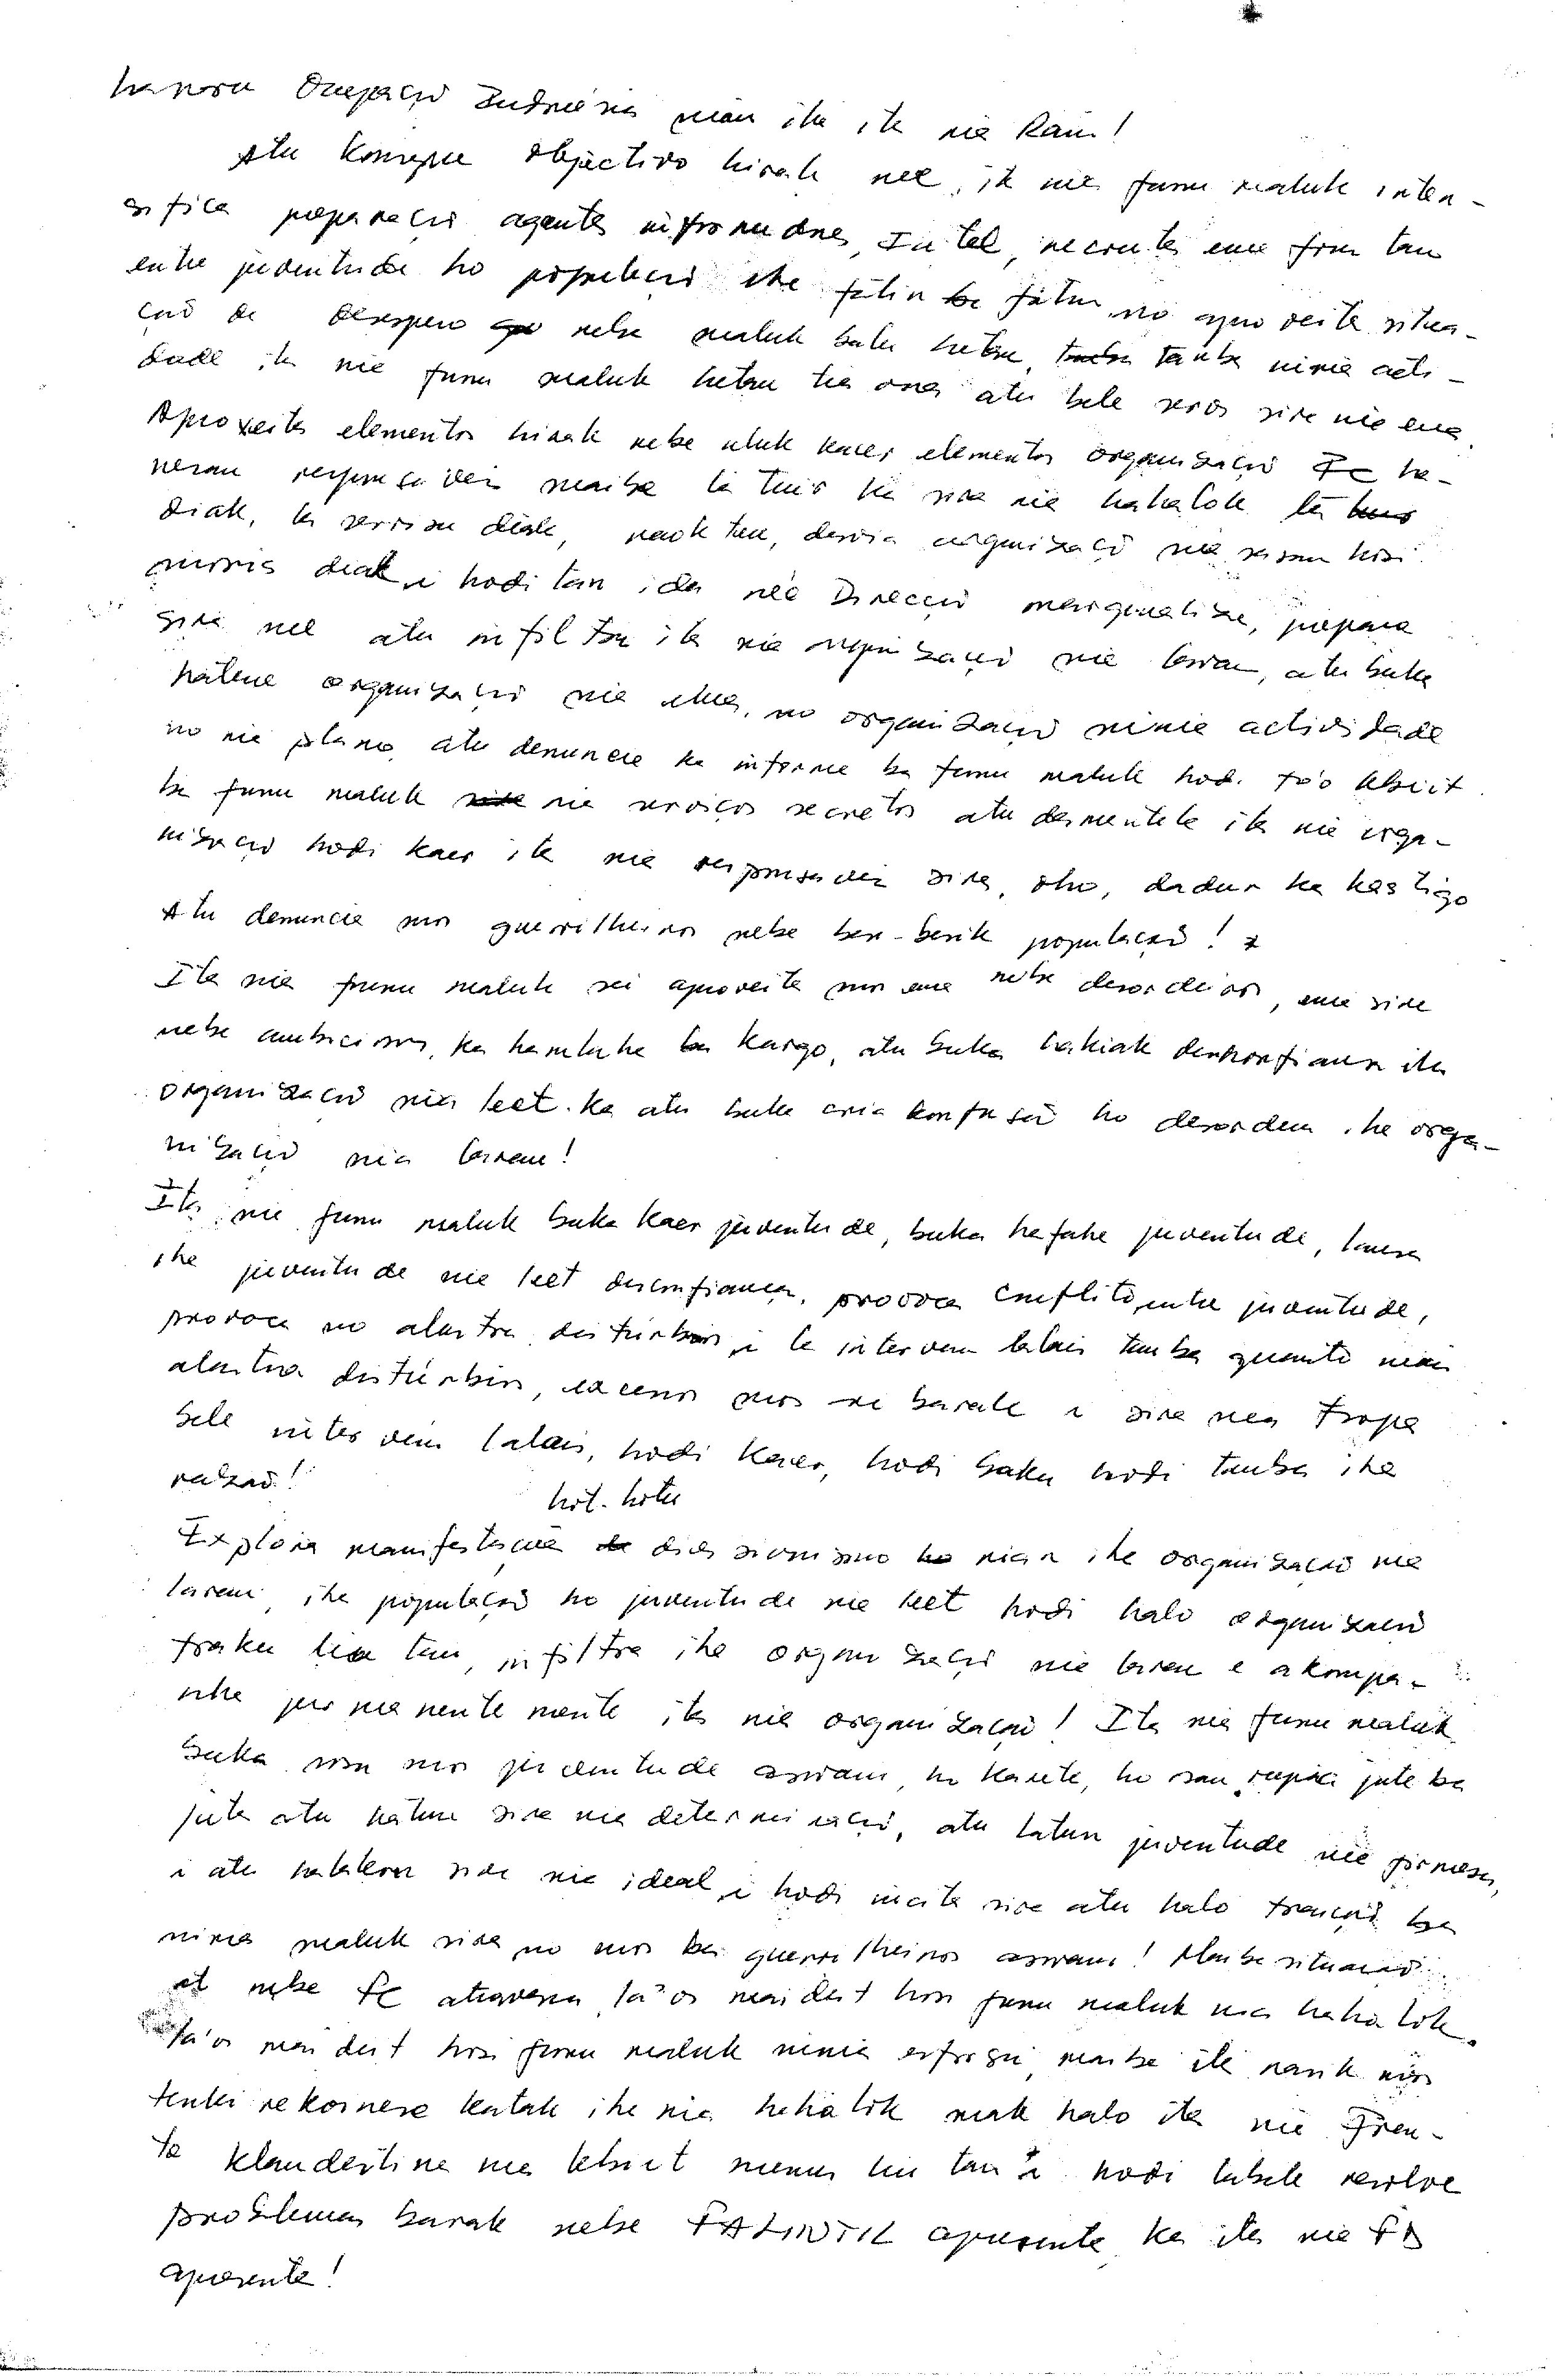 Ocupação Indonésia nian iha ita nia Rain!
Atu konsegue objectivo hirak nee, ita nia funu maluk inten-
sifica preparação agentes informadores, Intel, recruta ema foun tan
entre juventude ho população iha fatin ba fatin, no aproveita situa-
ção de desespero nebe maluk balu hetan, tanba ninia acti-
dade ita nia funu maluk hetan tia ona atu bele servi sira nia ema.
Aproveita elementos hirak nebe uluk kaer elementos organização FC ha-
neran responsavei maibe la tuir ka sira nia hahalok la
diak, la servisu diak, naok ten, desvia organização nia osan hosi
diak, i hodi tan ida nee Direcção marginaliza, prepara
sira nee atu infiltra ita nia organização nia laran, atu buka
hatene organização nia ema, no organização ninia actividade
no nia plano, atu denuncia ka informa ba funu maluk hodi fo'o kbiit
ba funu maluk nia serviços secretos atu desmantela ita nia orga-
nização hodi kaer ita nia responsavei sira, oho, dadur ka kastigo
Atu denuncia mos guerrilheiros nebe ber-berik população!
Ita nia funu maluk sei aproveita mos ema nebe desordeiros, ema sira
nebe ambiciosos, ka hamluha ba kargo, atu buka hakiak deskonfiansa ita
organização nia leet. Ka atu buka cria konfusão ho desordem iha orga-
nização nia laran!
Ita nia funu maluk buka kaer juventude, buka hafahe juventude, lansa
iha juventude nia leet desconfiança, provoca conflito, entre juventude,
provoca no alastra distúrbios, i la intervem lalais tanba quanto mais
alastra distúrbios, excesso mos sei barak i sira nia tropa
bele intervem lalais, hodi kaer, hodi baku hodi tanba iha
razão!
hot-hotu
Explora manifestação divisionismo nian iha organização nia
laran, iha população ho juventude nia leet hodi halo organização
fraku liu tan, infiltra iha organização nia laran e akompa-
nha permanentemente ita nia organização! Ita nia funu maluk
buka mos juventude aswain, ho karete, ho osan, rupia juta ba
juta atu hatun sira nia determinação, atu hatun juventude nia firmesa,
i atu hakleran sira nia ideal, i hodi incita sira atu halo traição ba
ninia maluk sira no mos ba guerrilheiros aswain! Maibe situação
at nebe FC atravessa, la'os mai deit hosi funu maluk nia hahalok.
La'os mai deit hosi funu maluk ninia esforsu, maibe ita rasik mos
tenki rekoinese katak iha nia hahalok mak halo ita nia Fren-
te Klandestina nia kbiit menus liu tan i hodi labele resolve
problemas barak nebe FALINTIL apresenta, ka ita nia FA
apresenta!